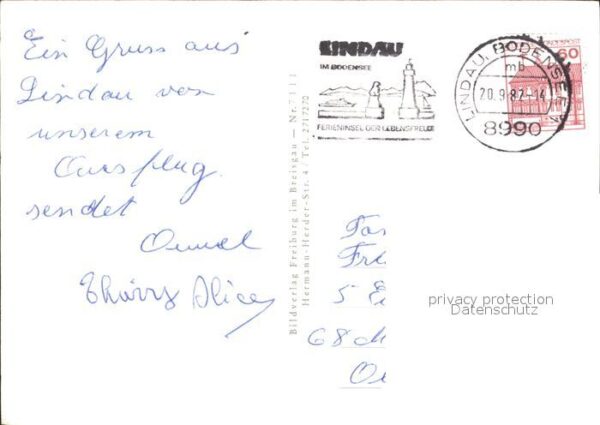 Ein Gruss aus
Lindau von
unserem
Carsflug
sendet
Thürry Alice
LINDAU
IM BODENSEE
FERIENINSEL DER LEBENSFREUDE
LINDAU, BODENSEE
mb
20.9.82-14
8990
60
Bildverlag Freiburg im Breisgau — Nr. 7111
Hermann-Herder-Str. 4 / Tel. 2717270
5
68
privacy protection
Datenschutz